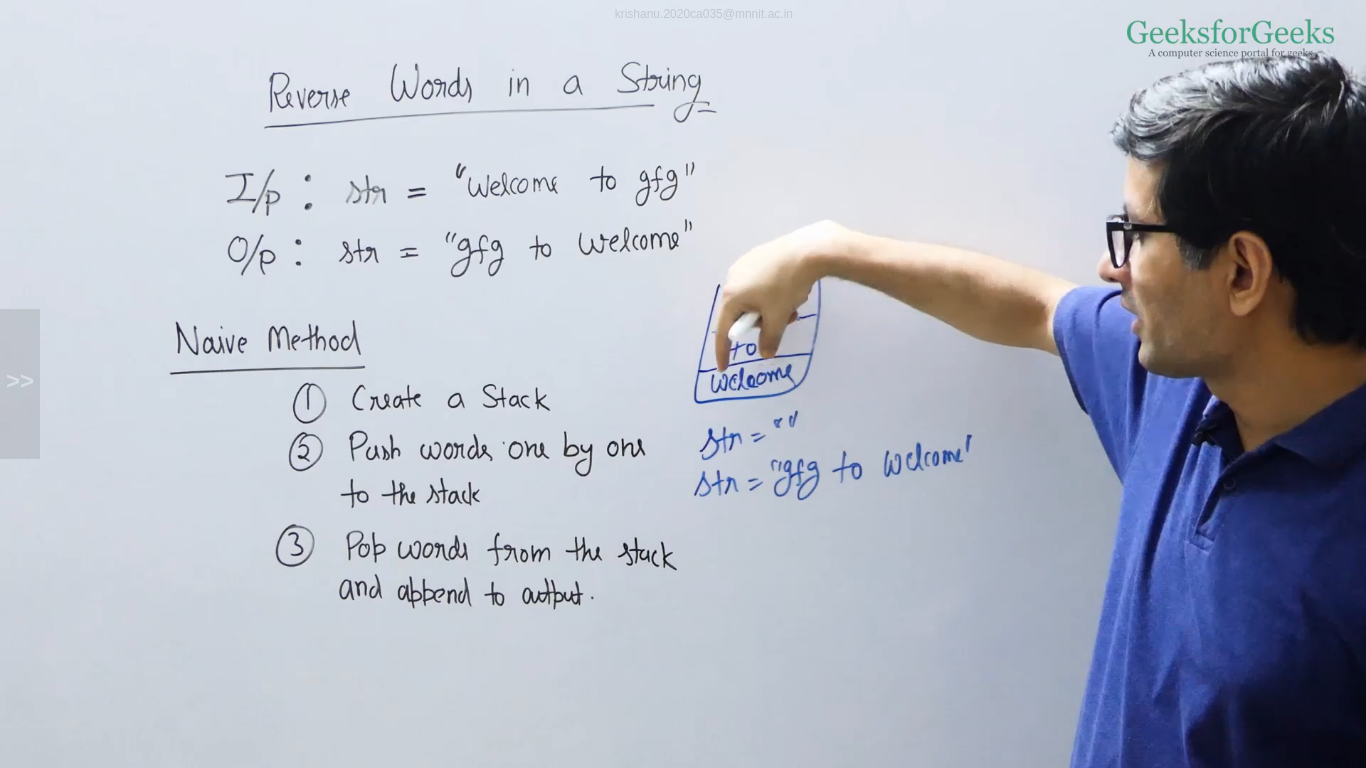 krishanu.2020ca035@mnnit.ac.in
GeeksforGeeks
A computer science portal for geeks
Reverse Words in a String
I/p : str = "Welcome to gfg"
O/p : str = "gfg to Welcome"
Naive Method
① Create a Stack
② Push words one by one
to the stack
③ Pop words from the stack
and append to output.
to
Welcome
str = ""
str = "gfg to Welcome"
>>